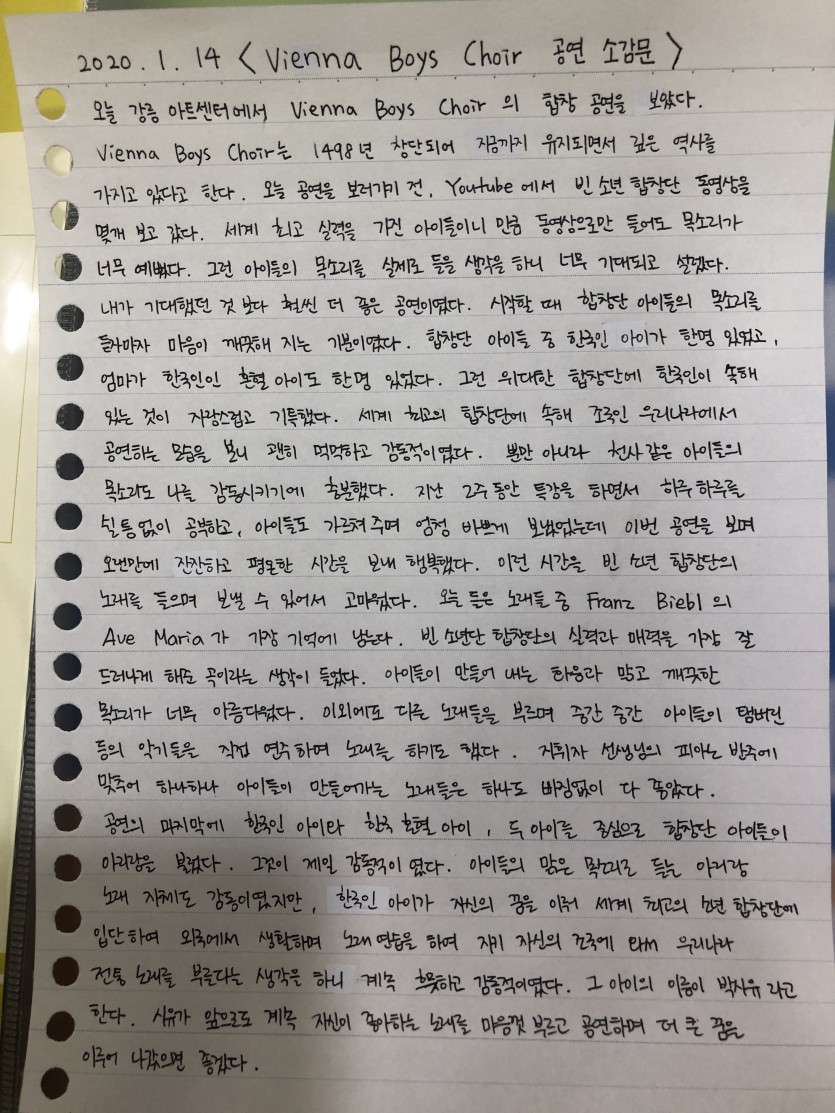 2020. 1. 14 < Vienna Boys Choir 공연 소감문 >
오늘 강릉 아트센터에서 Vienna Boys Choir 의 합창 공연을 보았다.
Vienna Boys Choir는 1498년 창단되어 지금까지 유지되면서 깊은 역사를
가지고 있다고 한다. 오늘 공연을 보러가기 전, Youtube 에서 빈 소년 합창단 동영상을
몇개 보고 갔다. 세계 최고 실력을 가진 아이들이니 만큼 동영상으로만 들어도 목소리가
너무 예뻤다. 그런 아이들의 목소리를 실제로 들을 생각을 하니 너무 기대되고 설렜다.
내가 기대했던 것 보다 훨씬 더 좋은 공연이였다. 시작할 때 합창단 아이들의 목소리를
듣자마자 마음이 깨끗해 지는 기분이였다. 합창단 아이들 중 한국인 아이가 한명 있었고,
엄마가 한국인인 혼혈 아이도 한명 있었다. 그런 위대한 합창단에 한국인이 속해
있는 것이 자랑스럽고 기특했다. 세계 최고의 합창단에 속해 조국인 우리나라에서
공연하는 모습을 보니 괜히 먹먹하고 감동적이였다. 뿐만 아니라 천사같은 아이들의
목소리도 나를 감동시키기에 충분했다. 지난 2주 동안 특강을 하면서 하루 하루를
쉴 틈 없이 공부하고, 아이들도 가르쳐 주며 엄청 바쁘게 보냈었는데 이번 공연을 보며
오랜만에 잔잔하고 평온한 시간을 보내 행복했다. 이런 시간을 빈 소년 합창단의
노래를 들으며 보낼 수 있어서 고마웠다. 오늘 들은 노래들 중 Franz Biebl 의
Ave Maria가 가장 기억에 남는다. 빈 소년단 합창단의 실력과 매력을 가장 잘
드러나게 해준 곡이라는 생각이 들었다. 아이들이 만들어 내는 화음과 맑고 깨끗한
목소리가 너무 아름다웠다. 이외에도 다른 노래들을 부르며 중간 중간 아이들이 탬버린
등의 악기들을 직접 연주하며 노래를 하기도 했다. 지휘자 선생님의 피아노 반주에
맞추어 하나하나 아이들이 만들어가는 노래들은 하나도 빠짐없이 다 좋았다.
공연의 마지막에 한국인 아이와 한국 혼혈 아이, 두 아이를 중심으로 합창단 아이들이
아리랑을 불렀다. 그것이 제일 감동적이 였다. 아이들의 맑은 목소리로 듣는 아리랑
노래 자체도 감동이였지만, 한국인 아이가 자신의 꿈을 이뤄 세계 최고의 소년 합창단에
입단하여 외국에서 생활하며 노래 연습을 하여 자기 자신의 조국에 와서 우리나라
전통 노래를 부른다는 생각을 하니 계속 흐뭇하고 감동적이였다. 그 아이의 이름이 박시유 라고
한다. 시유가 앞으로도 계속 자신이 좋아하는 노래를 마음껏 부르고 공연하며 더 큰 꿈을
이루어 나갔으면 좋겠다.